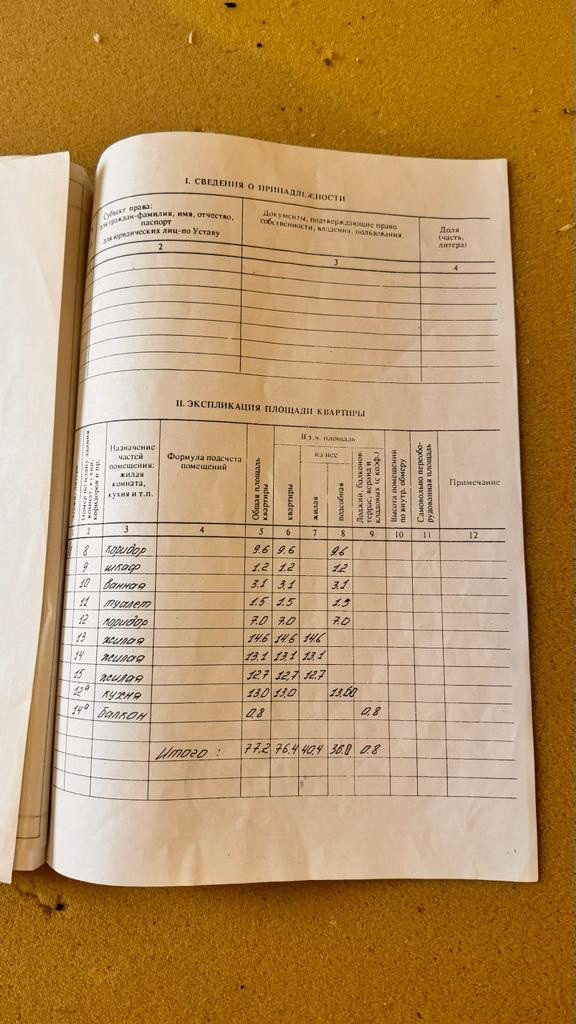 I. СВЕДЕНИЯ О ПРИНАДЛЕЖНОСТИ
Субъект права:
для граждан-фамилия, имя, отчество,
паспорт
для юридических лиц-по Уставу
Документы, подтверждающие право
собственности, владения, пользования.
Доля
(часть,
литера)
2 3 4
II. ЭКСПЛИКАЦИЯ ПЛОЩАДИ КВАРТИРЫ
Номер по плану здания
комнат, кухни,
коридоров и пр.
Назначение
частей
помещения:
жилая
комната,
кухня и т.п.
Формула подсчета
помещений
Общая площадь
квартиры
В т.ч. площадь
квартиры
из нее
жилая
подсобная
Лоджий, балконов,
террас, веранд и
кладовых (с коэф.)
Высота помещений
по внутр. обмеру
Самовольно переобо-
рудованная площадь
Примечание
2 3 4 5 6 7 8 9 10 11 12
8 коридор 9.6 9.6 9.6
9 шкаф 1.2 1.2 1.2
10 ванная 3.1 3.1 3.1
11 туалет 1.5 1.5 1.5
12 коридор 7.0 7.0 7.0
13 жилая 14.6 14.6 14.6
14 жилая 13.1 13.1 13.1
15 жилая 12.7 12.7 12.7
12а кухня 13.0 13.0 13.00
14а балкон 0.8 0.8
Итого : 77.2 76.4 40.4 36.0 0.8